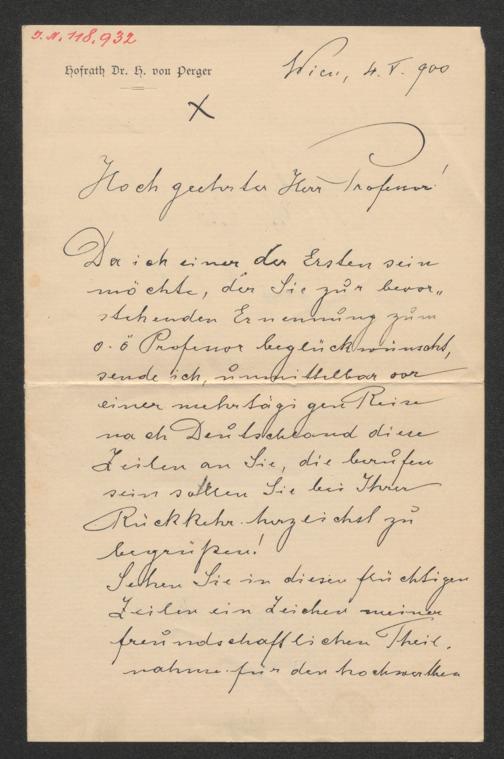 I.N. 118.932
Hofrath Dr. H. von Perger
Wien, 4. V. 900
Hoch geehrter Herr Professor!
Da ich einer der Ersten sein
möchte, der Sie zur bevor„
stehenden Ernennung zum
o. ö Professor beglückwünscht,
sende ich, unmittelbar vor
einer mehrtägigen Reise
nach Deutschland diese
Zeilen an Sie, die berufen
sein sollen Sie bei Ihrer
Rückkehr herzlichst zu
begrüßen!
Sehen Sie in diesen flüchtigen
Zeilen ein Zeichen meiner
freundschaftlichen Theil„
nahme für den hochwerthen